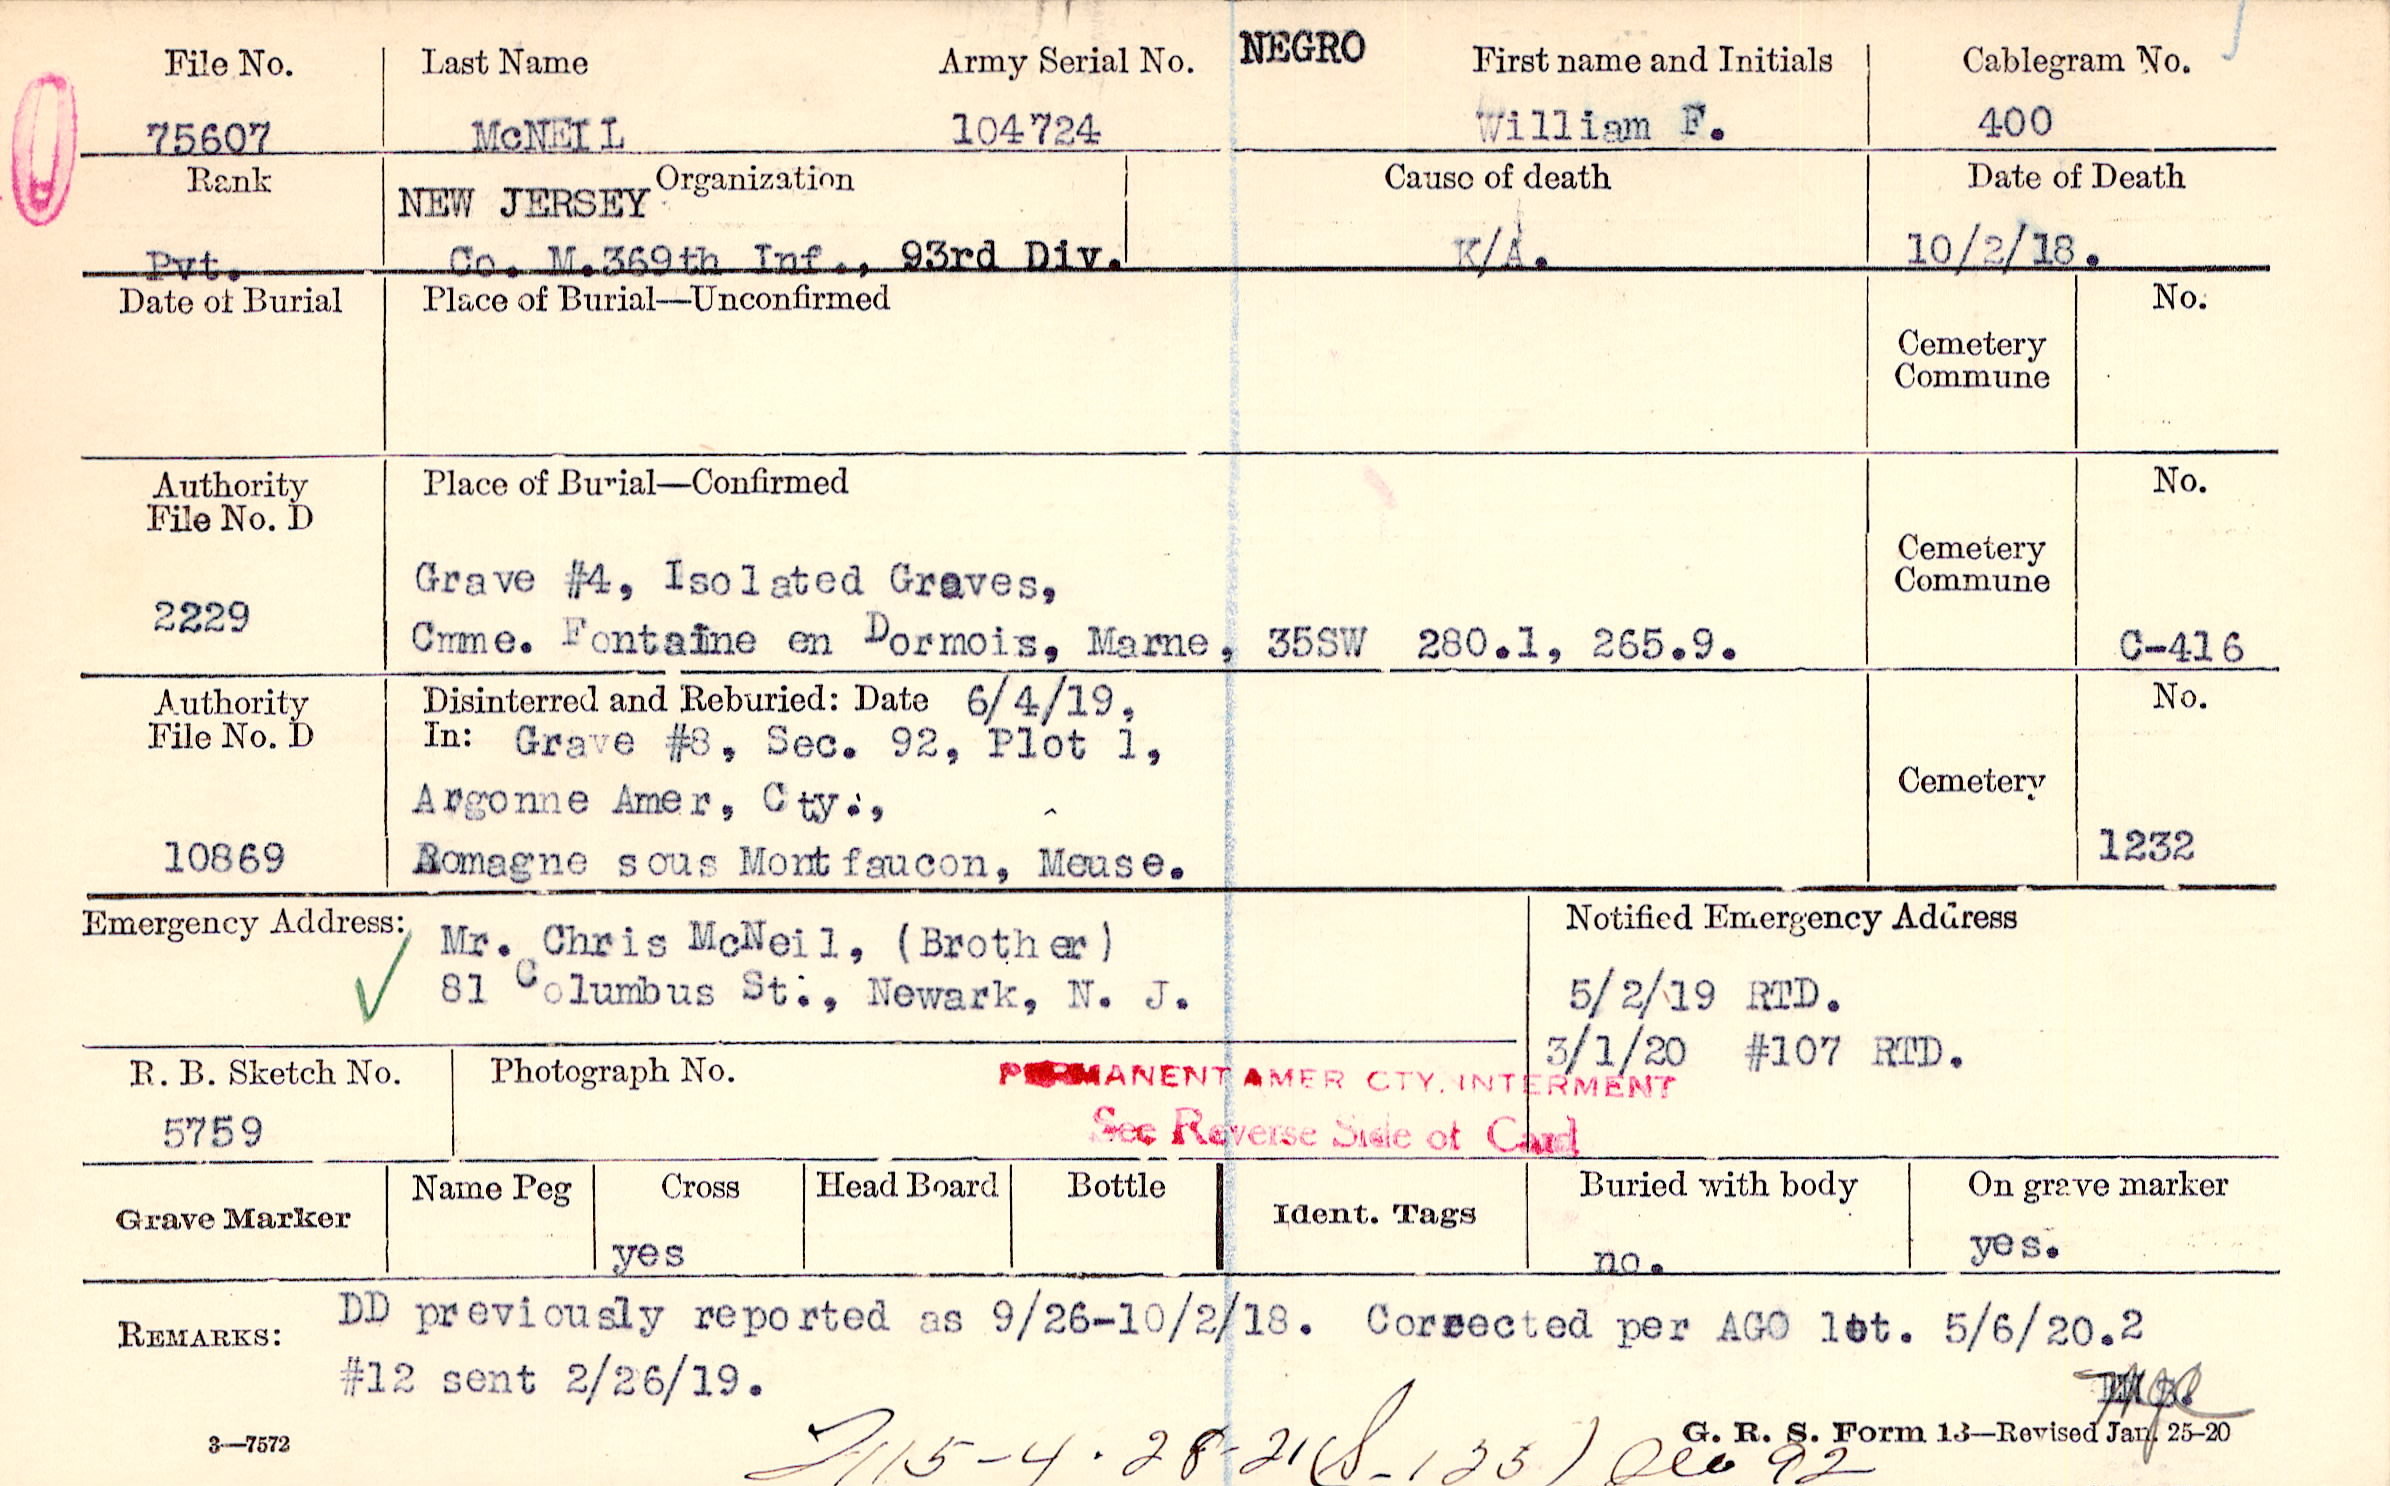 File No. Last Name Army Serial No. NEGRO First name and Initials Cablegram No.
75607 McNEIL 104724 William F. 400
Rank NEW JERSEY Organization Cause of death Date of Death
Pvt. Co. M.369th Inf., 93rd Div. K/A. 10/2/18.
Date of Burial Place of Burial—Unconfirmed No.
Cemetery
Commune
Authority Place of Burial—Confirmed No.
File No. D
Cemetery
Commune
Grave #4, Isolated Graves,
2229
Cmme. Fontaine en Dormois, Marne, 35SW 280.1, 265.9. C-416
Authority Disinterred and Reburied: Date 6/4/19, No.
File No. D In: Grave #8, Sec. 92, Plot 1,
Argonne Amer, Cty., Cemetery
10869 Romagne sous Montfaucon, Meuse. 1232
Emergency Address: Mr. Chris McNeil, (Brother) Notified Emergency Address
81 Columbus St., Newark, N. J. 5/2/19 RTD.
3/1/20 #107 RTD.
R. B. Sketch No. Photograph No. PERMANENT AMER CTY. INTERMENT
5759 See Reverse Side of Card
Grave Marker Name Peg Cross Head Board Bottle Ident. Tags Buried with body On grave marker
yes no. yes.
REMARKS: DD previously reported as 9/26-10/2/18. Corrected per AGO let. 5/6/20.2
#12 sent 2/26/19.
3—7572 G. R. S. Form 13—Revised Jan. 25-20
115-4.28-21 (S-123) 92